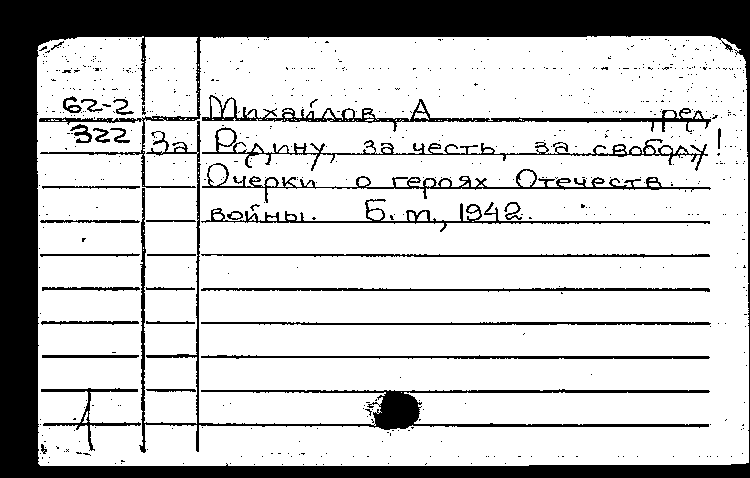 62-2 Михайлов, А , ред.
322 За Родину, за честь, за свободу!
Очерки о героях Отечеств.
войны. Б. т., 1942.
1